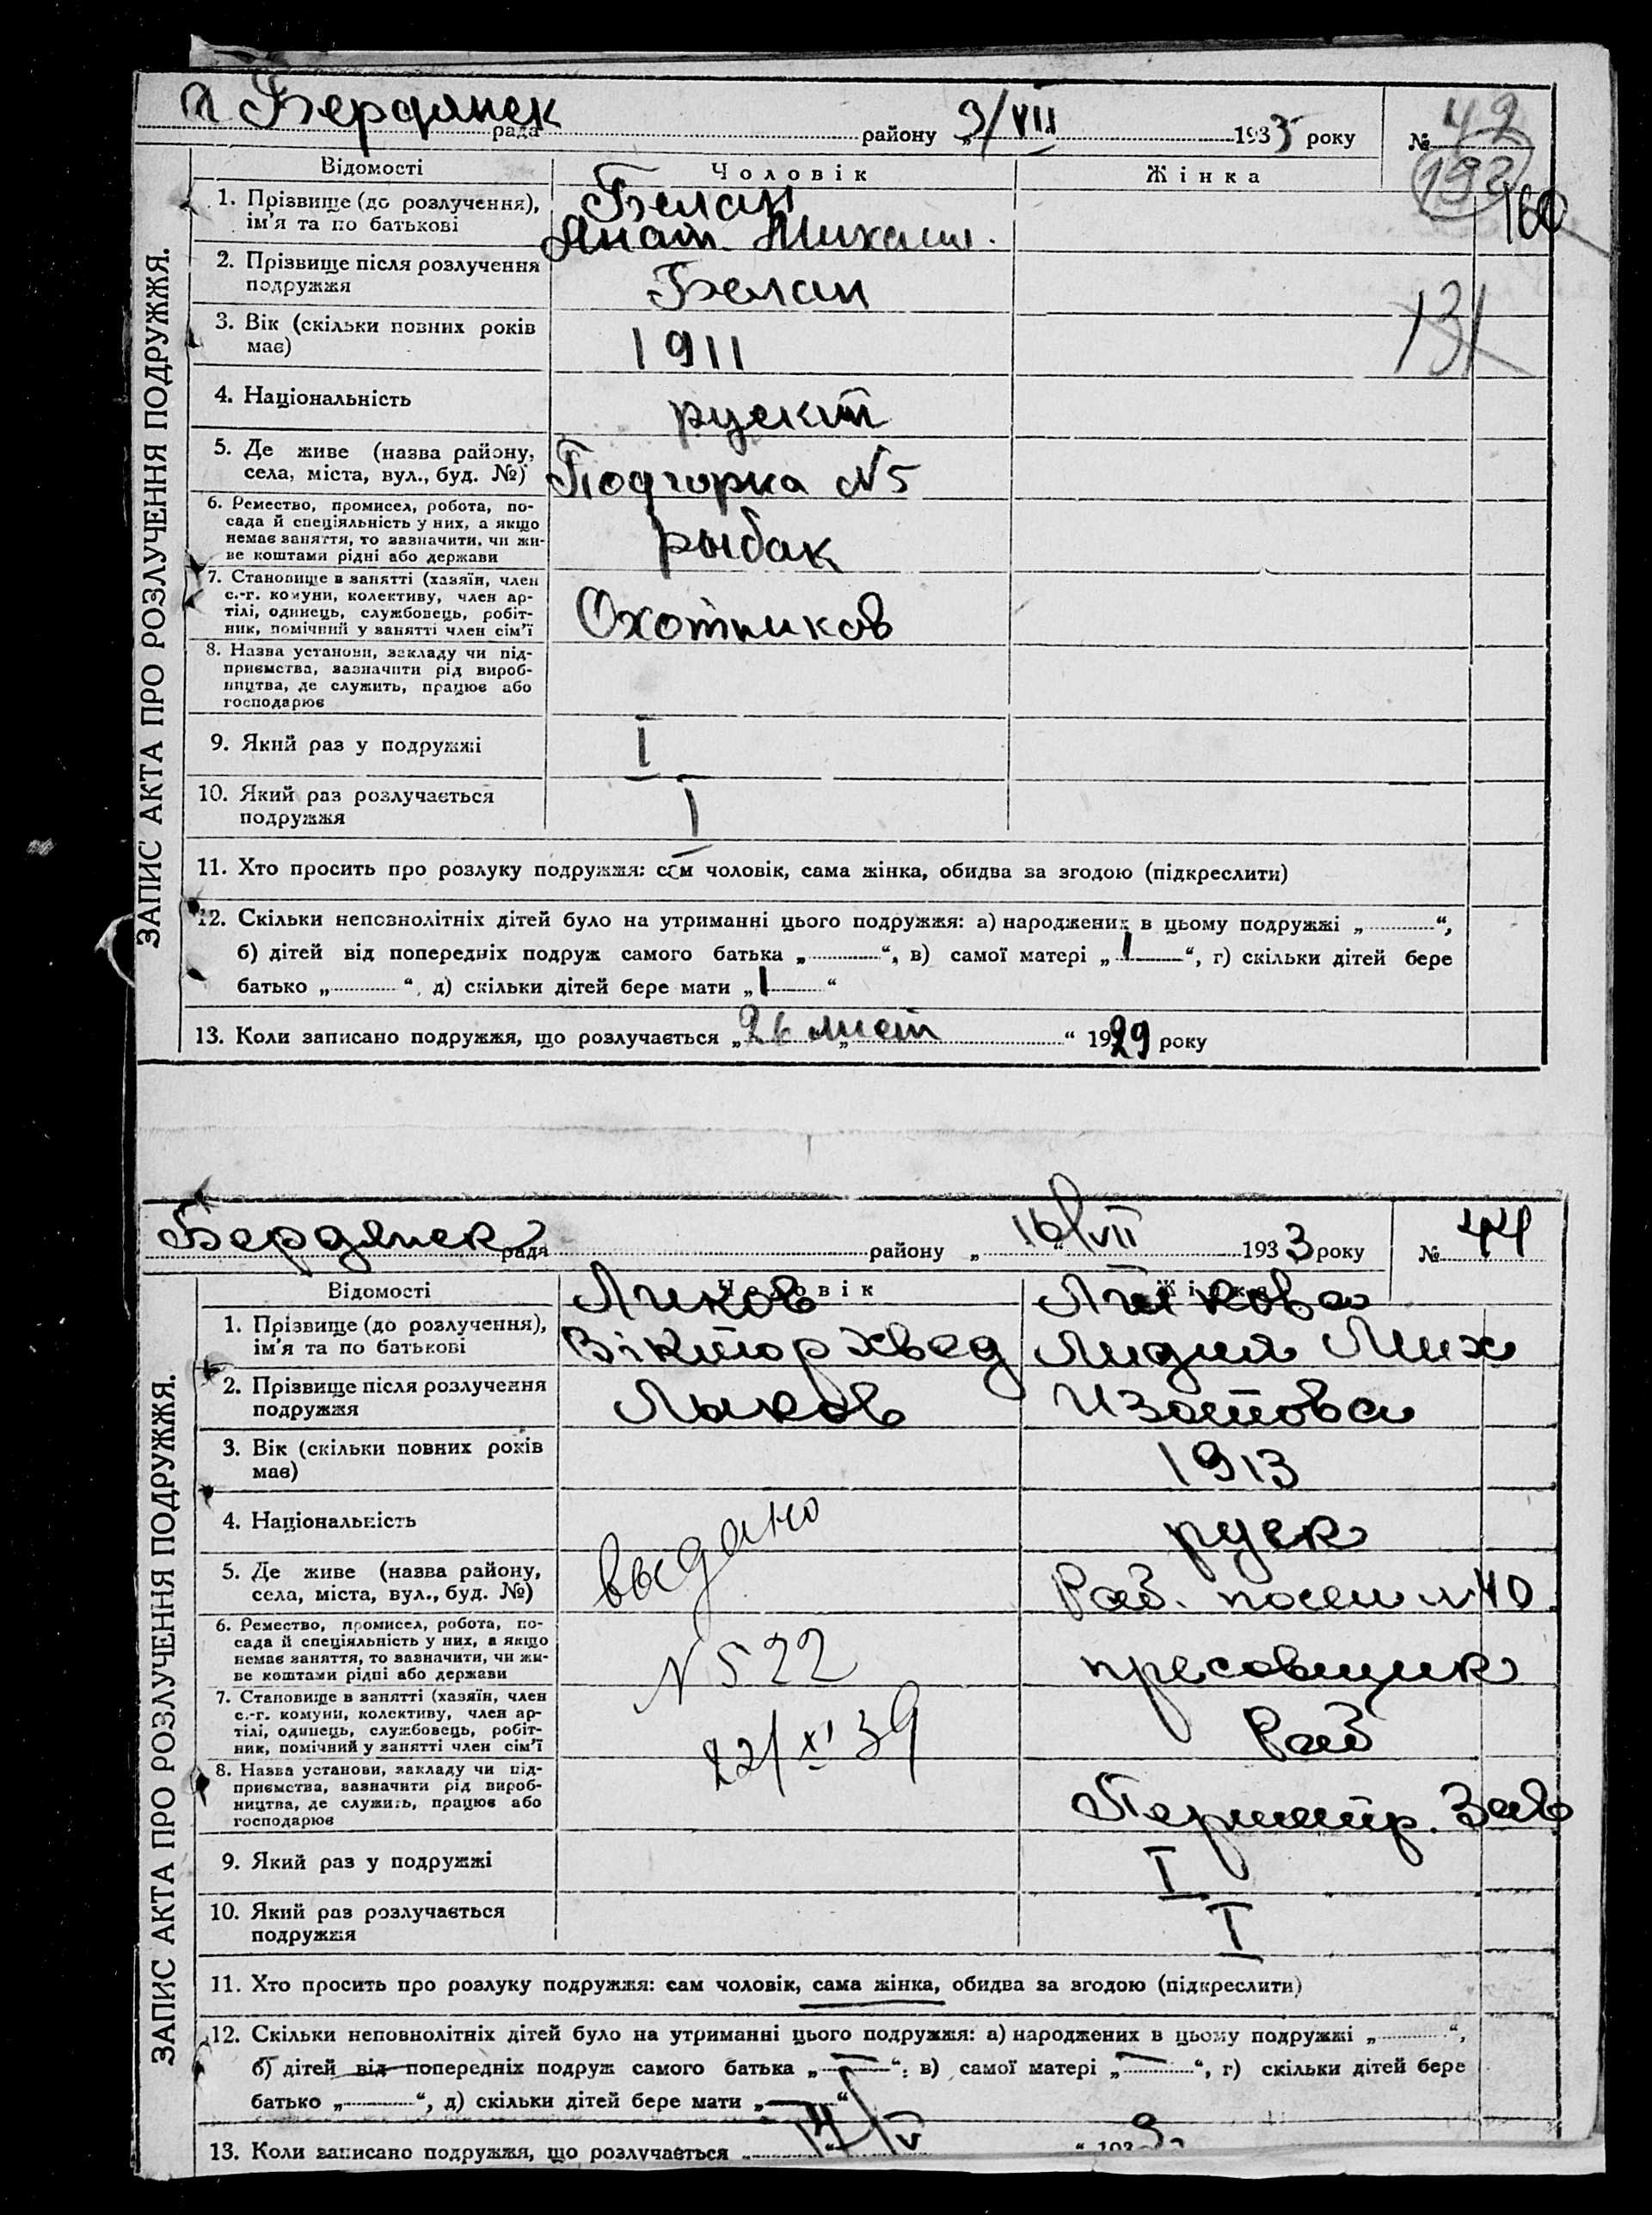 ЗАПИС АКТА ПРО РОЗЛУЧЕННЯ ПОДРУЖЖЯ.
Бердянск рада району „ 9/VII 1933 року № 49
192
160
131
Відомості Чоловік Жінка
1. Прізвище (до розлучення), ім'я та по батькові
Белан
Анат. Михаил.
2. Прізвище після розлучення подружжя
Белан
3. Вік (скільки повних років має)
1911
4. Національність
руский
5. Де живе (назва району, села, міста, вул., буд. №)
Подгорка №5
6. Ремество, промисел, робота, по-
сада й спеціяльність у них, а якщо
немає заняття, то зазначити, чи жи-
ве коштами рідні або держави
рыбак
7. Становище в занятті (хазяїн, член
с.-г. комуни, колективу, член ар-
тілі, одинець, службовець, робіт-
ник, помічний у занятті член сім'ї
Охотников
8. Назва установи, закладу чи під-
приємства, зазначити рід вироб-
ництва, де служить, працює або
господарює
9. Який раз у подружжі
I
10. Який раз розлучається подружжя
I
11. Хто просить про розлуку подружжя: сам чоловік, сама жінка, обидва за згодою (підкреслити)
12. Скільки неповнолітніх дітей було на утриманні цього подружжя: а) народжених в цьому подружжі „ “,
б) дітей від попередніх подруж самого батька „ “, в) самої матері „ 1 “, г) скільки дітей бере
батько „ “, д) скільки дітей бере мати „ 1 “
13. Коли записано подружжя, що розлучається „ 26 лист “ 1929 року
ЗАПИС АКТА ПРО РОЗЛУЧЕННЯ ПОДРУЖЖЯ.
Бердянск рада району „ 16/VII 1933 року № 44
Відомості Чоловік Жінка
1. Прізвище (до розлучення), ім'я та по батькові
Ликов Ликова
Віктор Хвед Лидия Мих
2. Прізвище після розлучення подружжя
Лыков Изотова
3. Вік (скільки повних років має)
1913
4. Національність
руск
выдано
5. Де живе (назва району, села, міста, вул., буд. №)
Раб. посел №40
6. Ремество, промисел, робота, по-
сада й спеціяльність у них, а якщо
немає заняття, то зазначити, чи жи-
ве коштами рідні або держави
N 522 пресовщик
7. Становище в занятті (хазяїн, член
с.-г. комуни, колективу, член ар-
тілі, одинець, службовець, робіт-
ник, помічний у занятті член сім'ї
22/XI 39 Раб
8. Назва установи, закладу чи під-
приємства, зазначити рід вироб-
ництва, де служить, працює або
господарює
Зав
9. Який раз у подружжі
I
10. Який раз розлучається подружжя
I
11. Хто просить про розлуку подружжя: сам чоловік, сама жінка, обидва за згодою (підкреслити)
12. Скільки неповнолітніх дітей було на утриманні цього подружжя: а) народжених в цьому подружжі „ “,
б) дітей від попередніх подруж самого батька „ — “, в) самої матері „ — “, г) скільки дітей бере
батько „ “, д) скільки дітей бере мати „ — “
13. Коли записано подружжя, що розлучається